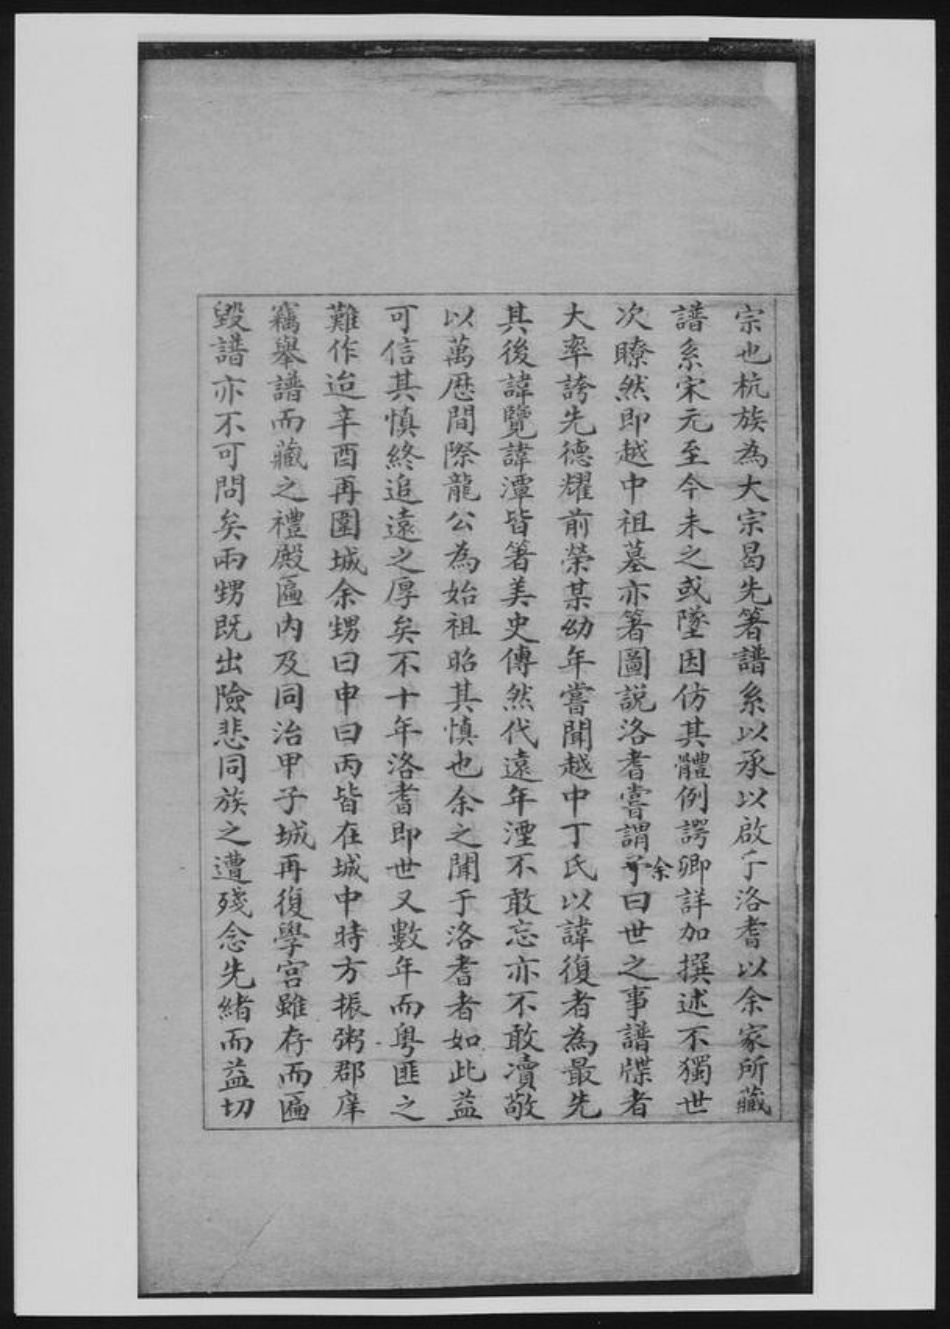 宗也杭族為大宗曷先箸譜系以承以啟于洛耆以余家所藏
譜系宋元至今未之或墜因仿其體例諤卿詳加撰述不獨世
次瞭然即越中祖墓亦箸圖説洛耆嘗謂予余曰世之事譜牒者
大率誇先德耀前榮某幼年嘗聞越中丁氏以諱復者為最先
其後諱覽諱潭皆箸美史傳然代遠年湮不敢忘亦不敢凟敬
以萬歷間際龍公為始祖昭其慎也余之聞于洛耆者如此益
可信其慎終追遠之厚矣不十年洛耆即世又數年而粵匪之
難作迨辛酉再圍城余甥曰申曰丙皆在城中時方振粥郡庠
竊舉譜而藏之禮殿匾内及同治甲子城再復學宮雖存而匾
毀譜亦不可問矣兩甥既出險悲同族之遭殘念先緒而益切